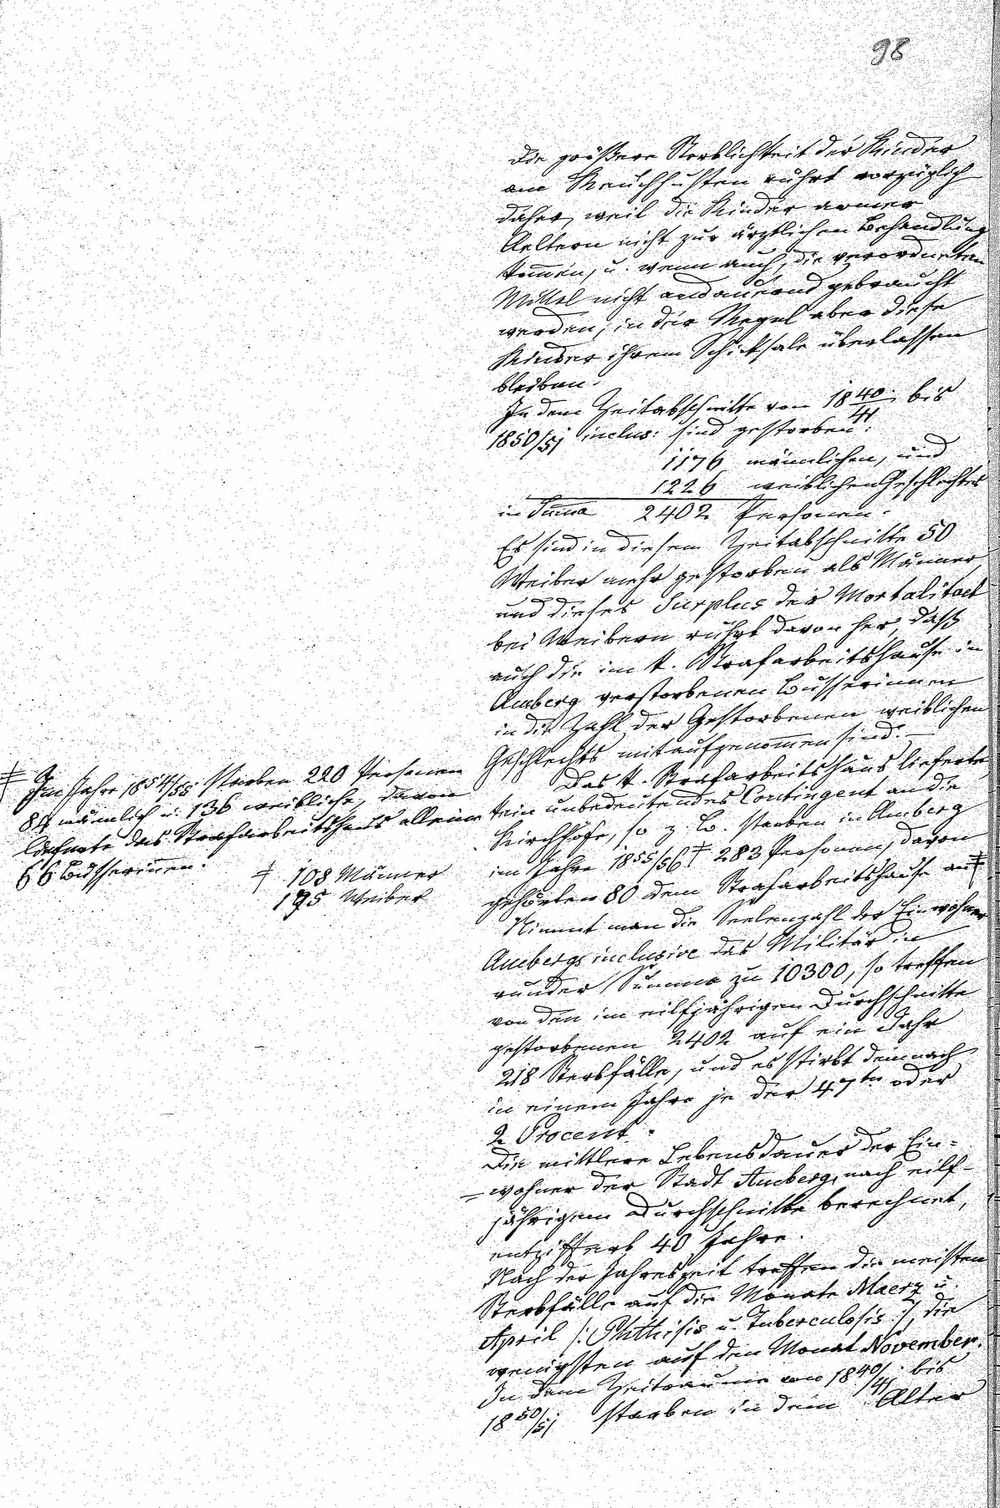 98
Die größere Sterblichkeit der Kinder
am Keuchhusten rührt vorzüglich
daher, weil die Kinder armer
Aeltern nicht zur ärztlichen Behandlung
kom̅en, u. wenn auch, die verordneten
Mittel nicht andauernd gebraucht
werden, in der Regel aber diese
Kinder ihrem Schicksale überlassen
bleiben.
In dem Zeitabschnitte von 1840/41 bis
1850/51 inclus: sind gestorben:
1176 männlichen, und
1226 weiblichen Geschlechtes
in Suma 2402 Personen.
Es sind in diesem Zeitabschnitte 50
Weiber mehr gestorben als Männer
und dieses Surplus der Mortalitaet
bei Weibern rührt davon her, daß
auch die im k. Strafarbeitshause in
Amberg verstorbenen Büsserinnen
in die Zahl der Gestorbenen weiblichen
Geschlechts mitaufgenom̅en sind. —
Das k. Strafarbeitshaus lieferte
kein unbedeutendes Contingent an die
Kirchhöfe, so z. B. starben in Amberg
im Jahre 1855/56 ‡ 283 Personen, davon
gehörten 80 dem Strafarbeitshause an ‡
Nimmt man die Seelenzahl der Einwohner
Ambergs inclusive des Militär in
runder Summa zu 10300, so treffen
von den im eilfjährigen Durchschnitte
gestorbenen 2402 auf ein Jahr
218 Sterbfälle, und es stirbt demnach
in einem Jahre je der 47te oder
2 Procent.
Die mittlere Lebensdauer der Ein=
=wohner der Stadt Amberg, nach eilf-
jährigem Durchschnitte berechnet,
entziffert 40 Jahre.
Nach der Jahreszeit treffen die meisten
Sterbfälle auf die Monate Maerz u.
April /: Phthisis u. Tuberculosis :/, die
wenigsten auf den Monat November.
In dem Zeitraume von 1840/41 bis
1850/51 starben in dem Alter
‡ Im Jahre 1854/55 starben 220 Personen
84 männlich u. 136 weibliche, davon
lieferte das Strafarbeitshaus allein
66 Büsserinnen.
‡ 108 Männer
175 Weiber